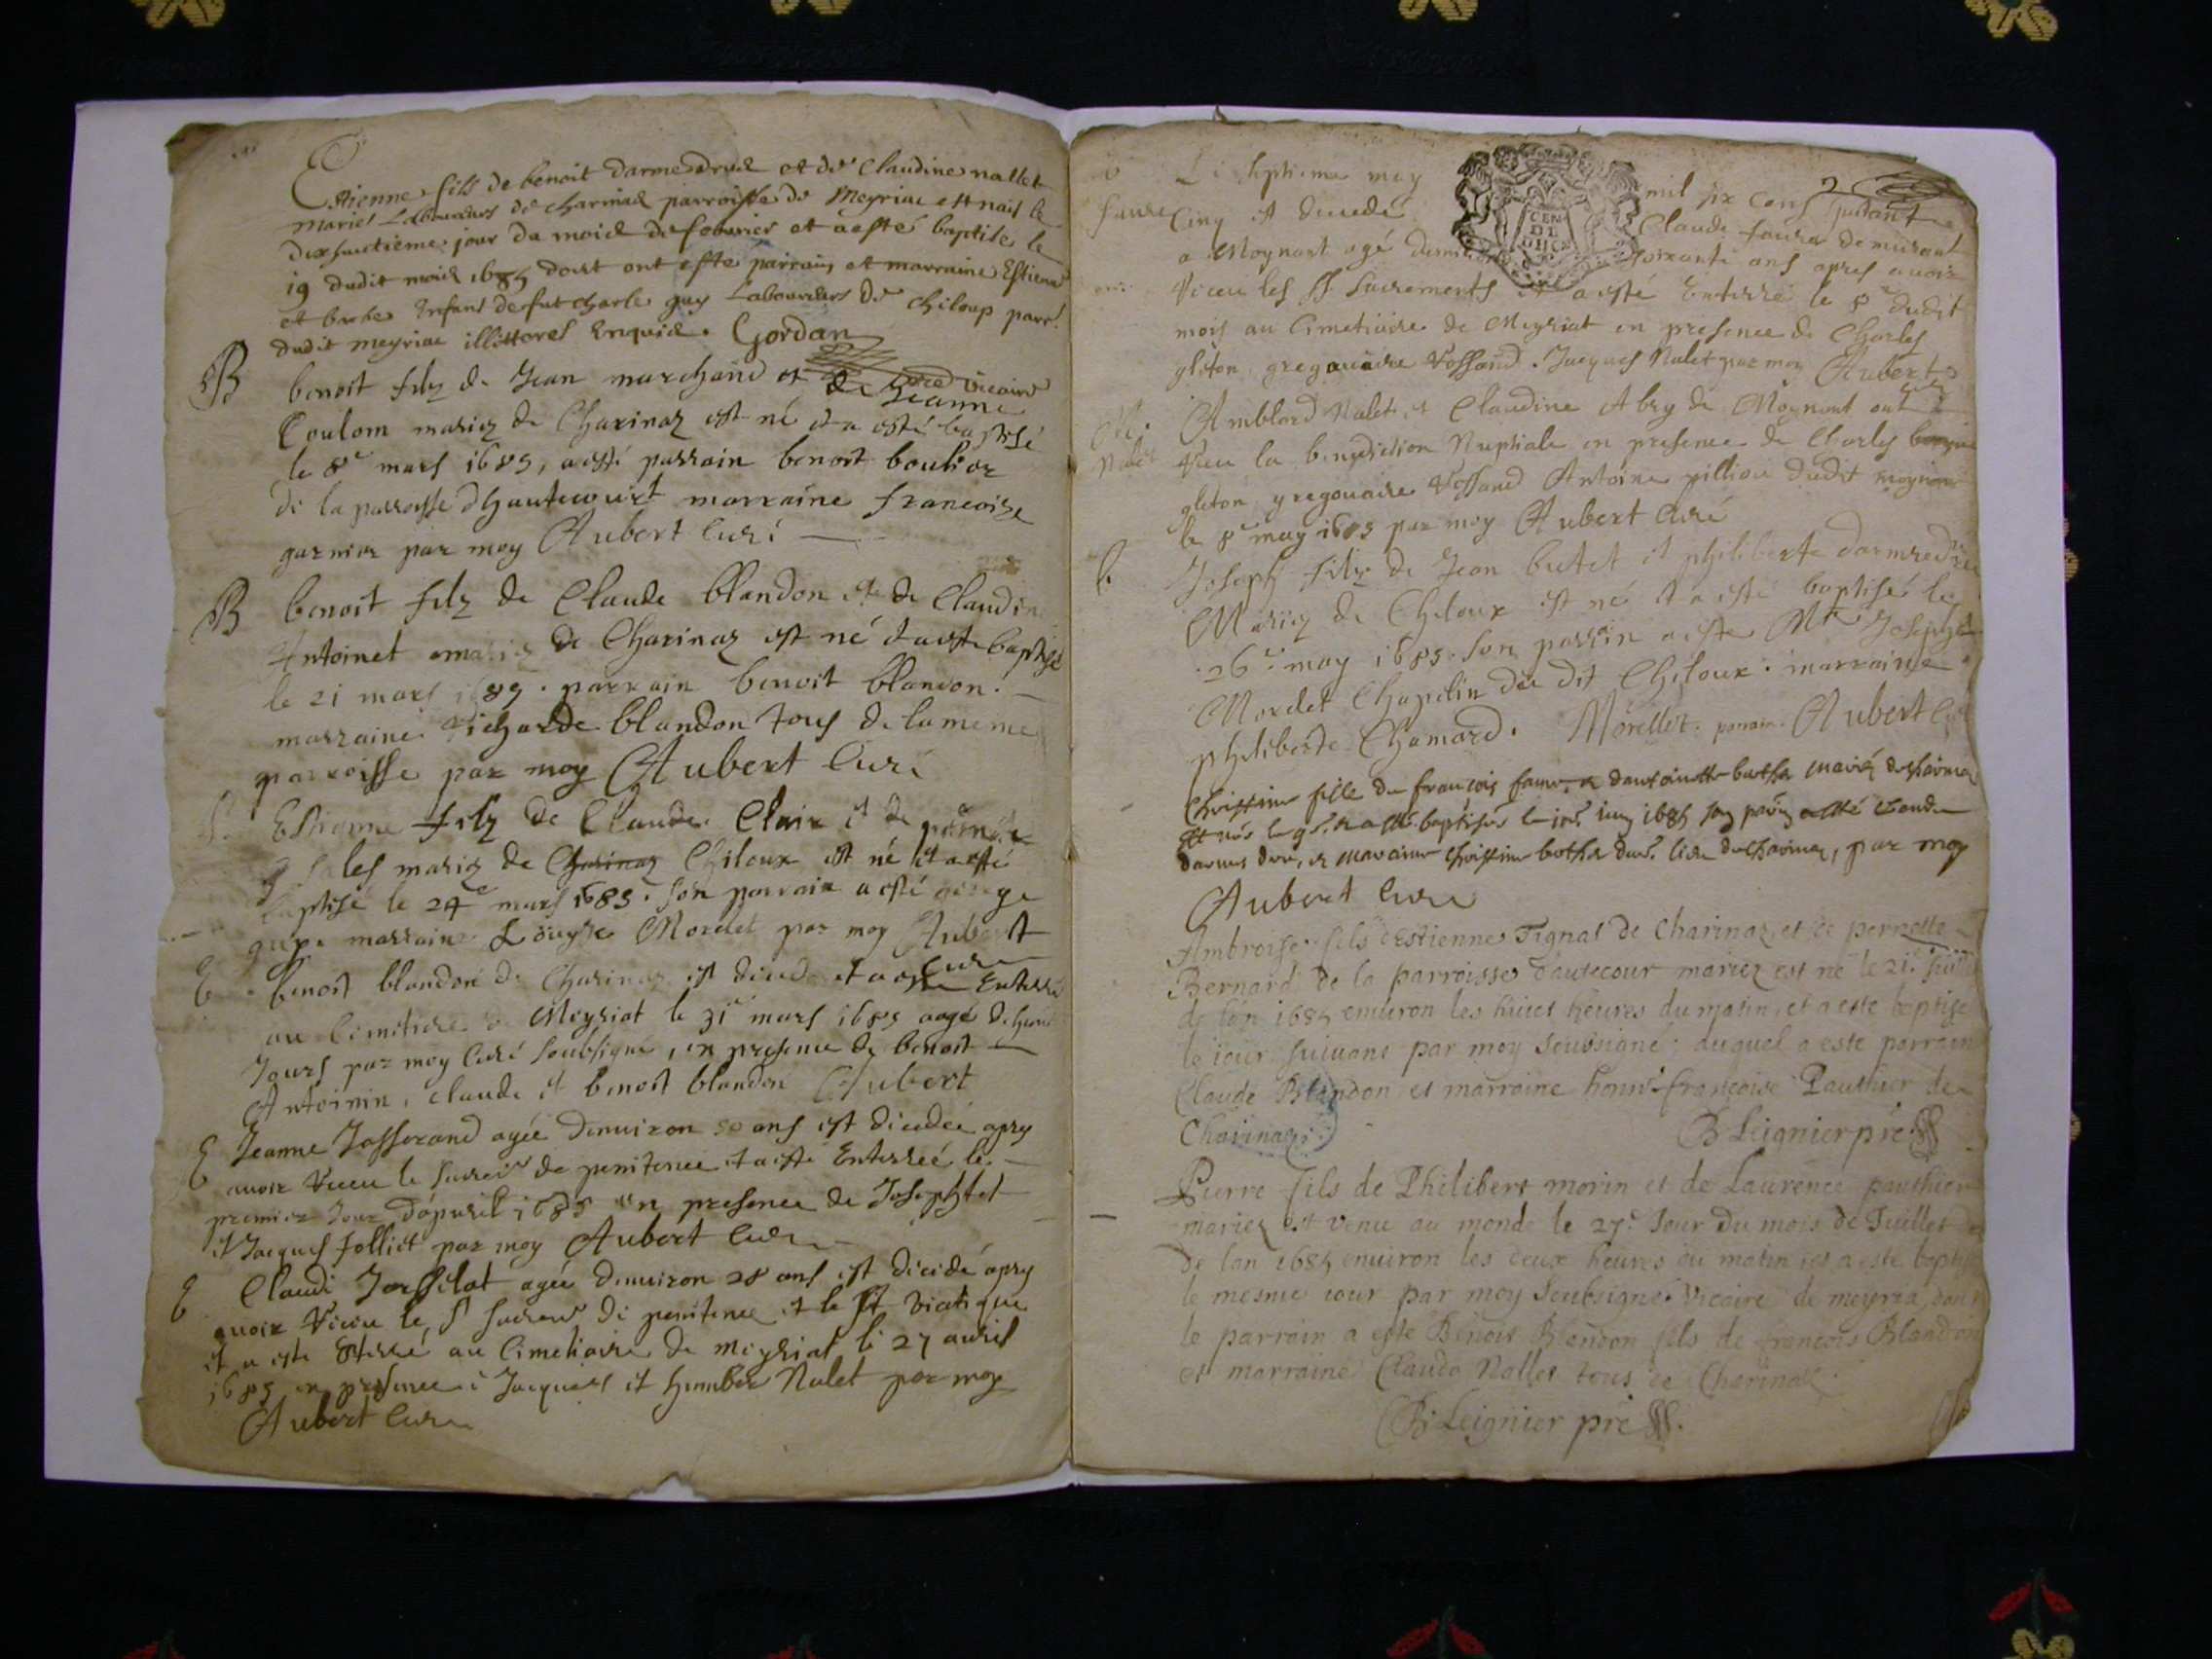 Estienne fils de benoit darmedrud et de Claudine nallet
mariés Laboureurs de charinad parroisse de Meyriac est nais le
dixhuictieme jour du mois de feburier et a esté baptise le
19 dudit mois 1685 dont ont esté parrain et marraine Estienne
et barbe Enfans de fut charle guy Laboureurs de Chiloup parr.
dudit meyriac illittores Enquid. Gordan
B
vicaire
benoit filz de Jean marchand et de Jeanne
Coulom mariez de Charinaz est né et a esté baptisé
le 8e mars 1685, a esté parrain benoit boulier
de la parroisse dhautecourt marraine francoise
garnier par moy Aubert Curé
B
benoit filz de Claude blandon et de Claudin
Antoinet mariez de Charinaz est né et a esté baptisé
le 21 mars 1685. parrain benoit blandon.
marraine richarde blandon tous de la meme
parroisse par moy Aubert Curé
Estienne filz de Claude Clair et de
mariez de Charinaz Chiloux est né et a esté
baptisé le 24e mars 1685. son parrain a esté george
marraine Louyse Mordet par moy Aubert
Curé
E
benoit blandon de Charinaz est decede et a esté Enterré
au Cimetiere de Meyriat le 31e mars 1685 aagé de huit
Jours par moy Curé soubsigné, en presence de benoit
Antoinin, claude et benoit blandon Aubert
E
Jeanne Josserand agée denuiron 50 ans est decedée apres
auoir receu le sacrem de penitence et a esté Enterrée le
premier Jour dapuril 1685 en presence de Joseph
et Jacques folliet par moy Aubert Curé
E
Claudi agée denuiron 28 ans est decidé apres
auoir receu le St sacrem de penitence et le St viatique
et a esté Eterré au Cimetiaire de Meyriat le 27 auril
1685 en presence Jacques et humber Nalet par moy
Aubert Curé
2
Le septieme may mil six cens huitante
faure
Cinq est decedé Claude faure demurant
a Moynant agé denuiron soixante ans apres auoir
receu les St sacrements et a esté Enterré le 8e dudit
mois au Cimetiaire de Meyriat en presence de Charles
gleton gregouaire Vossand. Jacques Nalet par moy Aubert
Curé
M.
Nalet
Amblard Nalet et Claudine Abry de Moynant ont
receu la benediction Nuptiale en presence de Charles
gleton gregouaire Vossand Antoine pillion dudit moynant
le 8e may 1685 par moy Aubert Curé
b.
Joseph filz de Jean butet et philiberte darmedrue
Mariez de Chiloux est né et a esté baptisé le
26e may 1685. son parrain a esté Mre Joseph
Mordet Chapelin du dit Chiloux. marraine
philiberte Chamard. Morellet. parrain. Aubert
Christine fille de francois faure et dantoinette bertha mariés de charinaz
est née le 9e. et a esté baptisée le 10e iuin 1685 son parrin a esté claude
darmedrue, et marraine christine botha dud. lieu de charinaz, par moy
Aubert Curé
Ambroise fils destienne Tignat de Charinaz, et de pernette
Bernard de la parroisse dautecour mariez est né le 21e Juillet
de lan 1685 enuiron les huict heures du matin, et a este baptise
le iour suiuant par moy soussigné; duquel a este parrain
Claude Blandon et marraine hons. francoise Pauthier de
Charinaz. B Leignier pre
Pierre fils de Philibert morin et de Laurence pauthier
mariez est venu au monde le 27e Jour du mois de Juillet
de lan 1685 enuiron les deux heures du matin et a este baptisé
le mesme iour par moy soubsigné Vicaire de meyria, dont
le parrain a este Benoit Blandon fils de francois Blandon
et marraine Clauda Nallet tous de Charinaz.
B Leignier pre